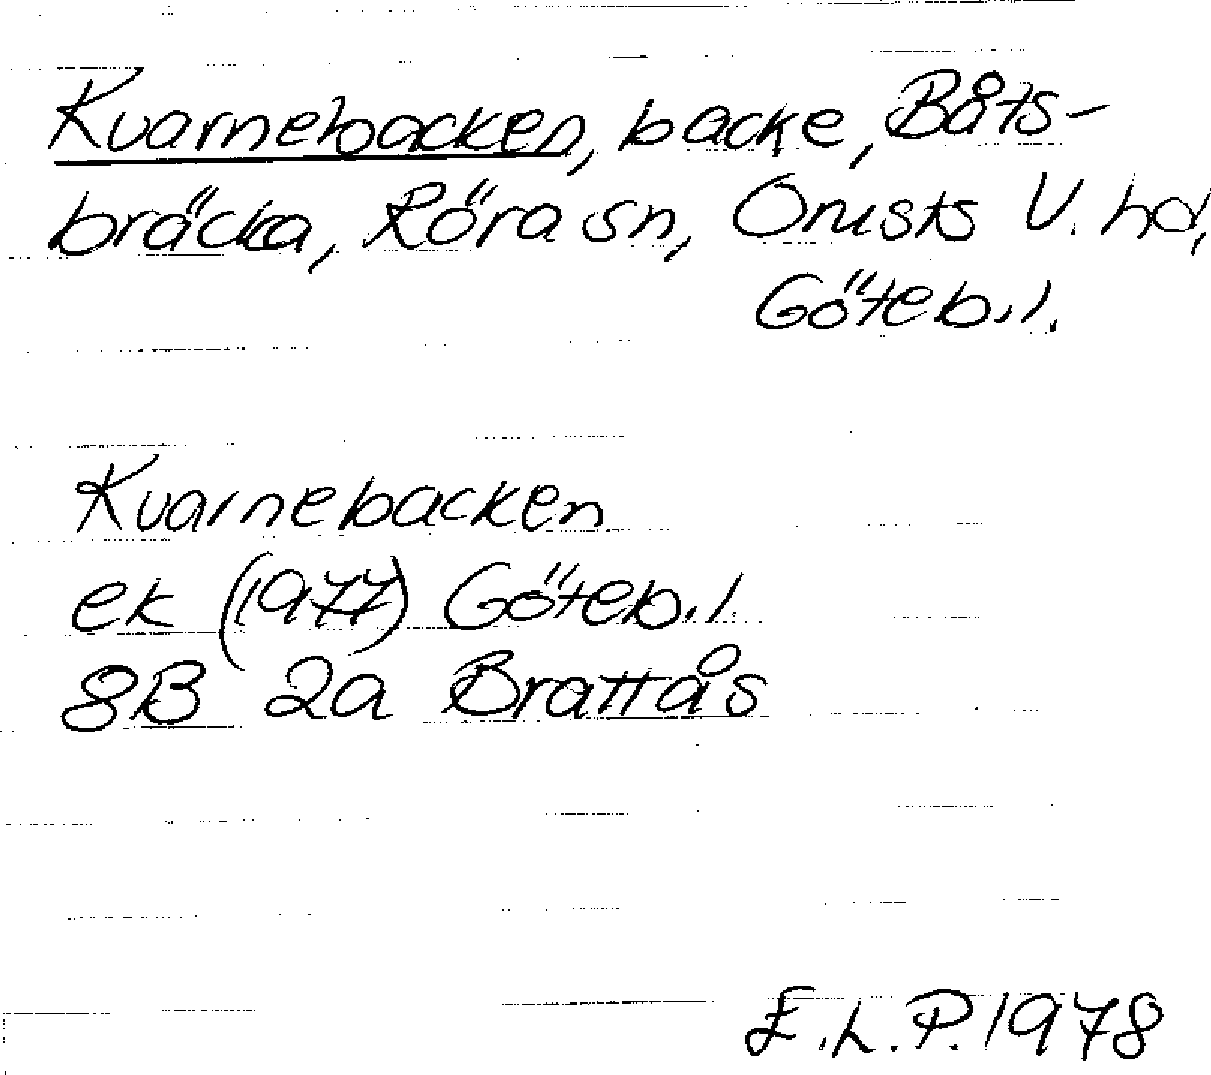 Kvarnebacken, backe, Båts-
bräcka, Röra sn, Orusts V. hd,
Göteb. l.
Kvarnebacken
ek (1977) Göteb. l.
8B 2a Brattås
E.L.P. 1978